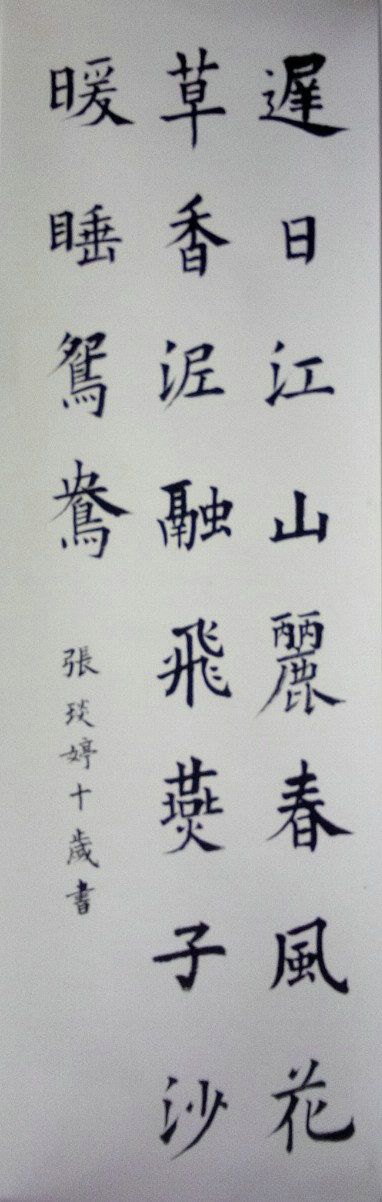 遲日江山麗春風花
草香泥融飛燕子沙
暖睡鴛鴦
張琰婷十歲書